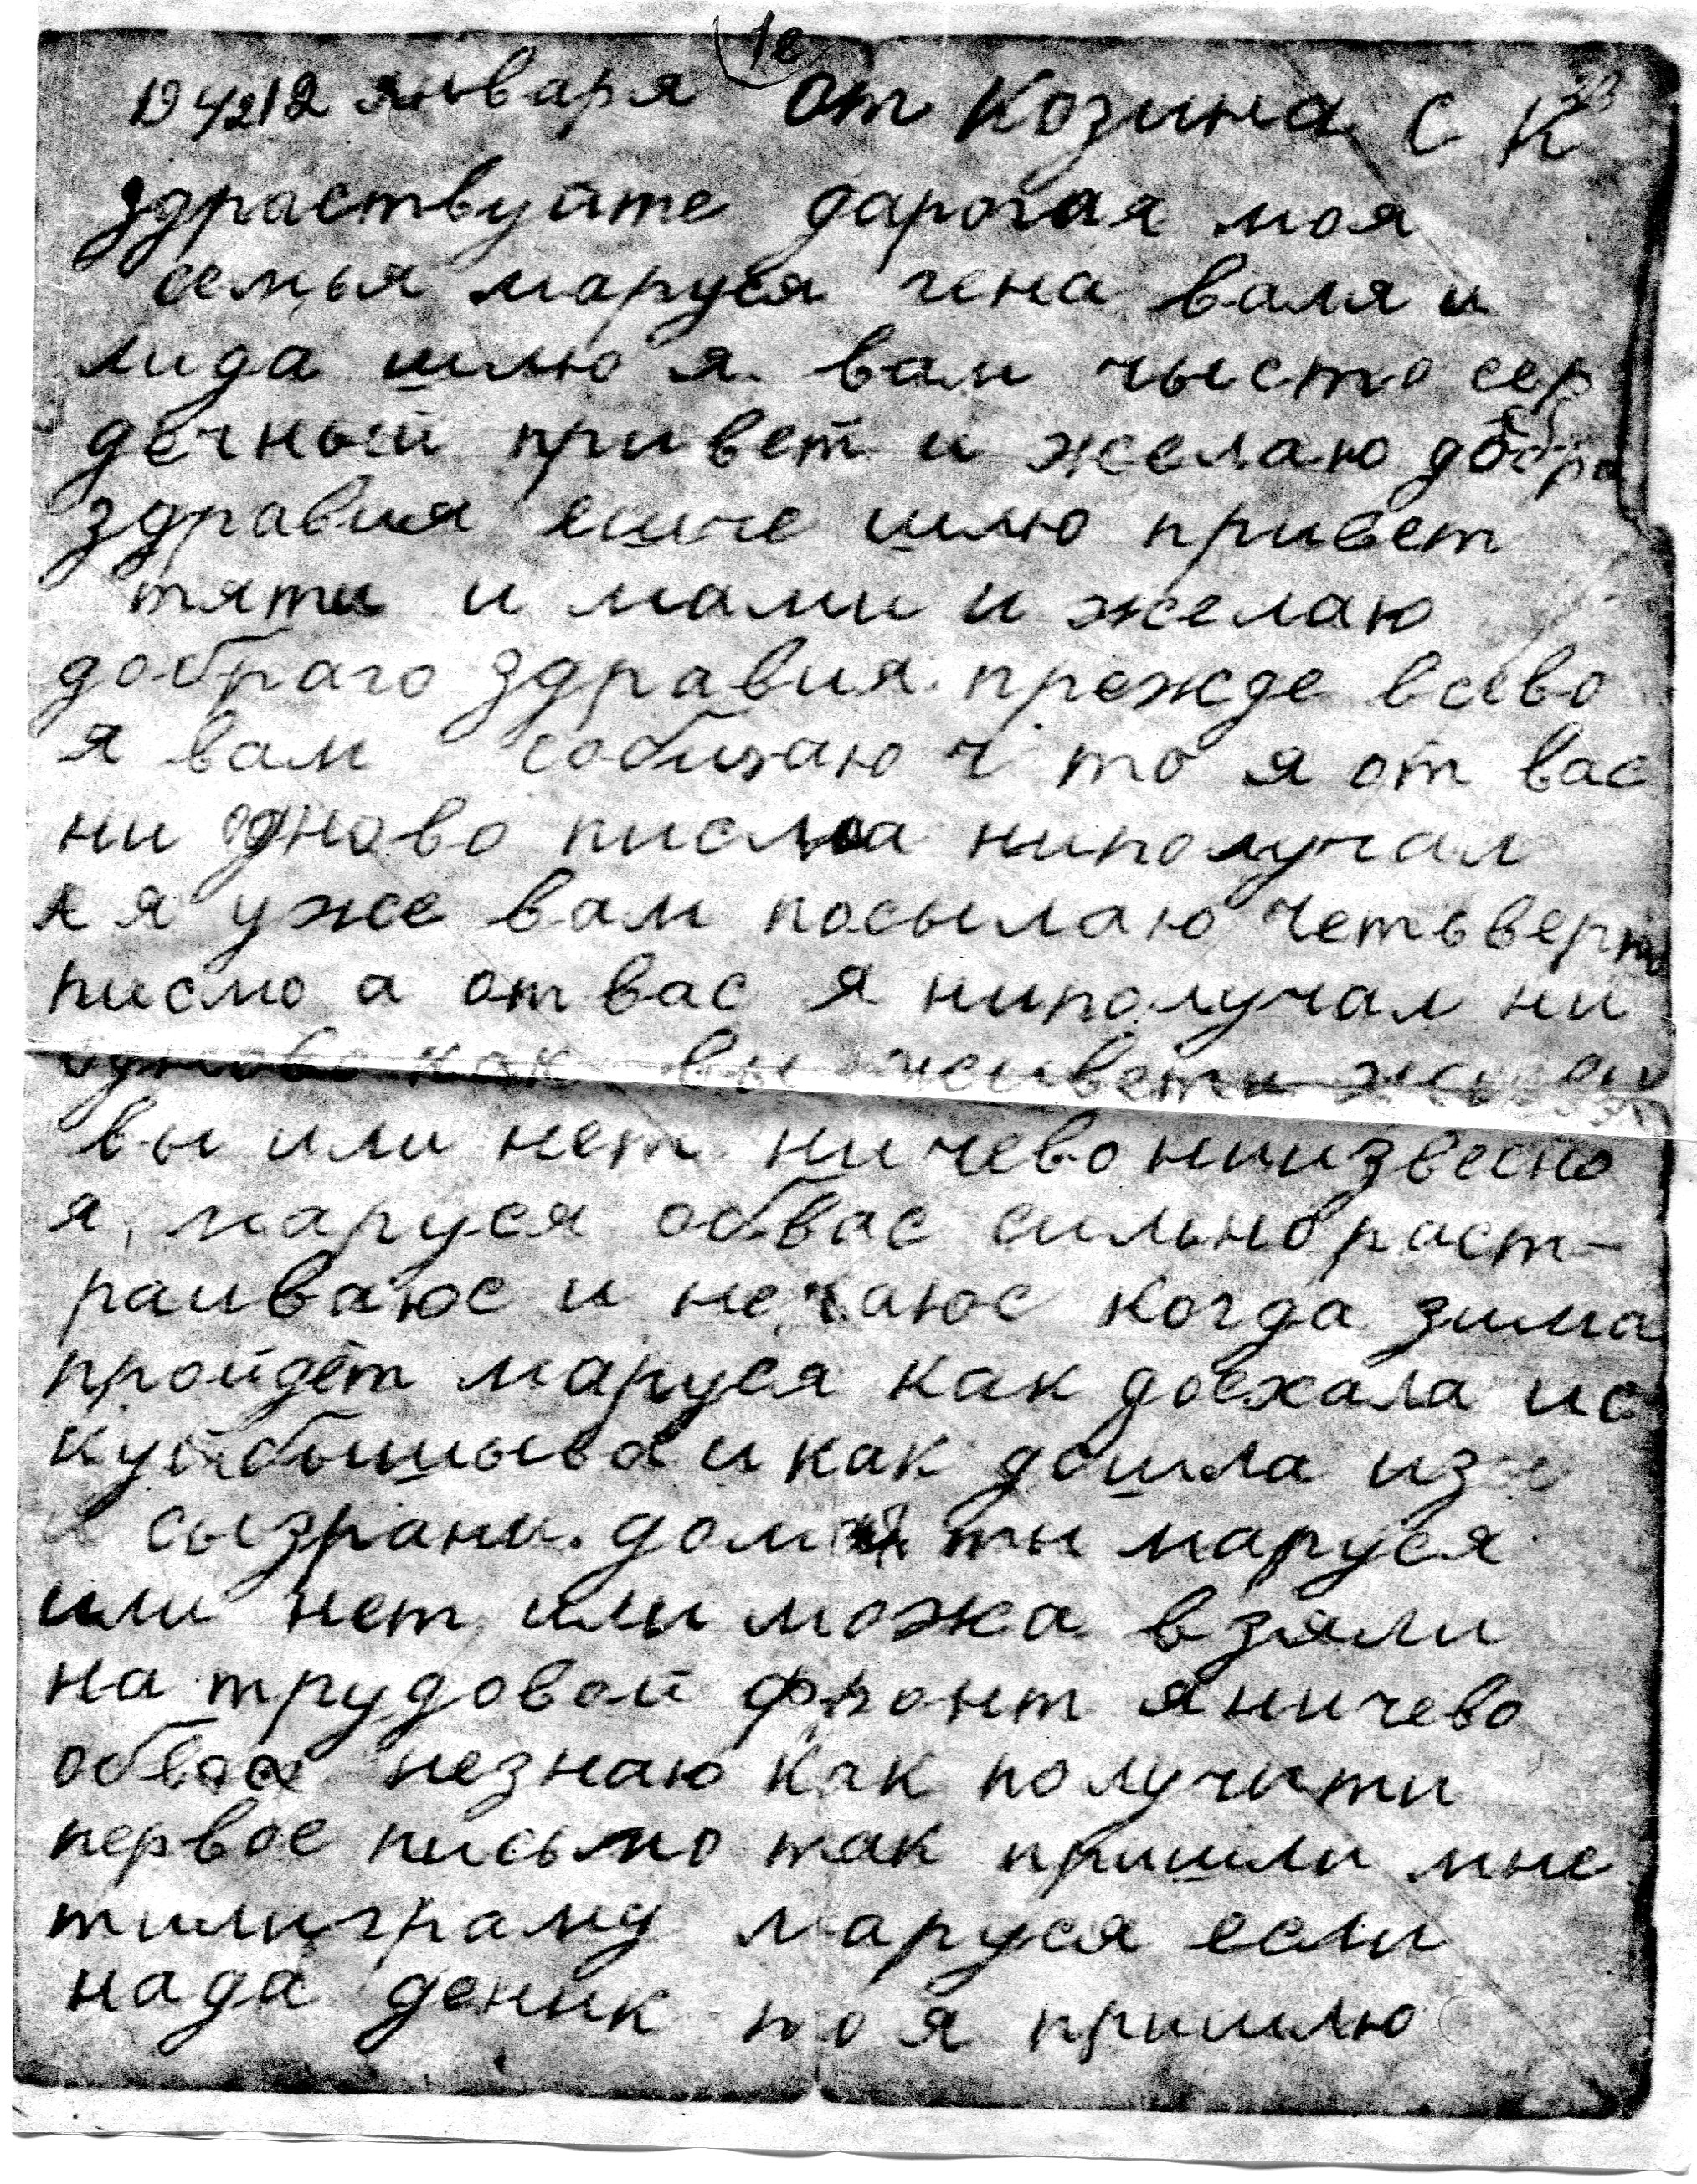 1е
1942 12 января от Козина С К
здраствуйте дарогая моя
семья маруся гена валя и
лида шлю я вам чысто сер
дечный привет и желаю добра
здравия ешче шлю привет
тяти и мами и желаю
добраго здравия. прежде всево
я вам собчаю что я от вас
ни одново писма ниполучал
А я уже вам посылаю четьверто
писмо а от вас я ниполучал ни
одново как вы живети живы
вы или нет ничево ниизвесно
я, маруся обвас сильно раст-
раиваюс и нечаюс когда зима
пройдёт маруся как доехала ис
куйбышыва и как дошла из
сызрани. дома ти маруся
или нет или можа взяли
на трудовой фронт яничево
обвас незнаю как получити
первое письмо так пришли мне
тилиграму маруся если
нада деник то я пришлю